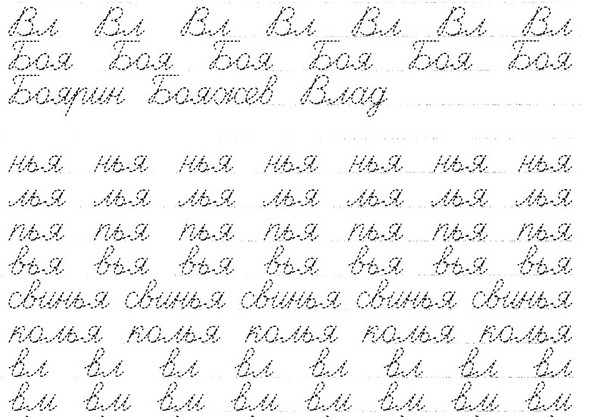 Вл Вл Вл Вл Вл Вл Вл
Боя Боя Боя Боя Боя Боя
Боярин Бояжев Влад
нья нья нья нья нья нья нья
лья лья лья лья лья лья лья
пья пья пья пья пья пья пья
вья вья вья вья вья вья вья
свинья свинья свинья свинья свинья
колья колья колья колья колья
вл вл вл вл вл вл вл вл
вм вм вм вм вм вм вм вм